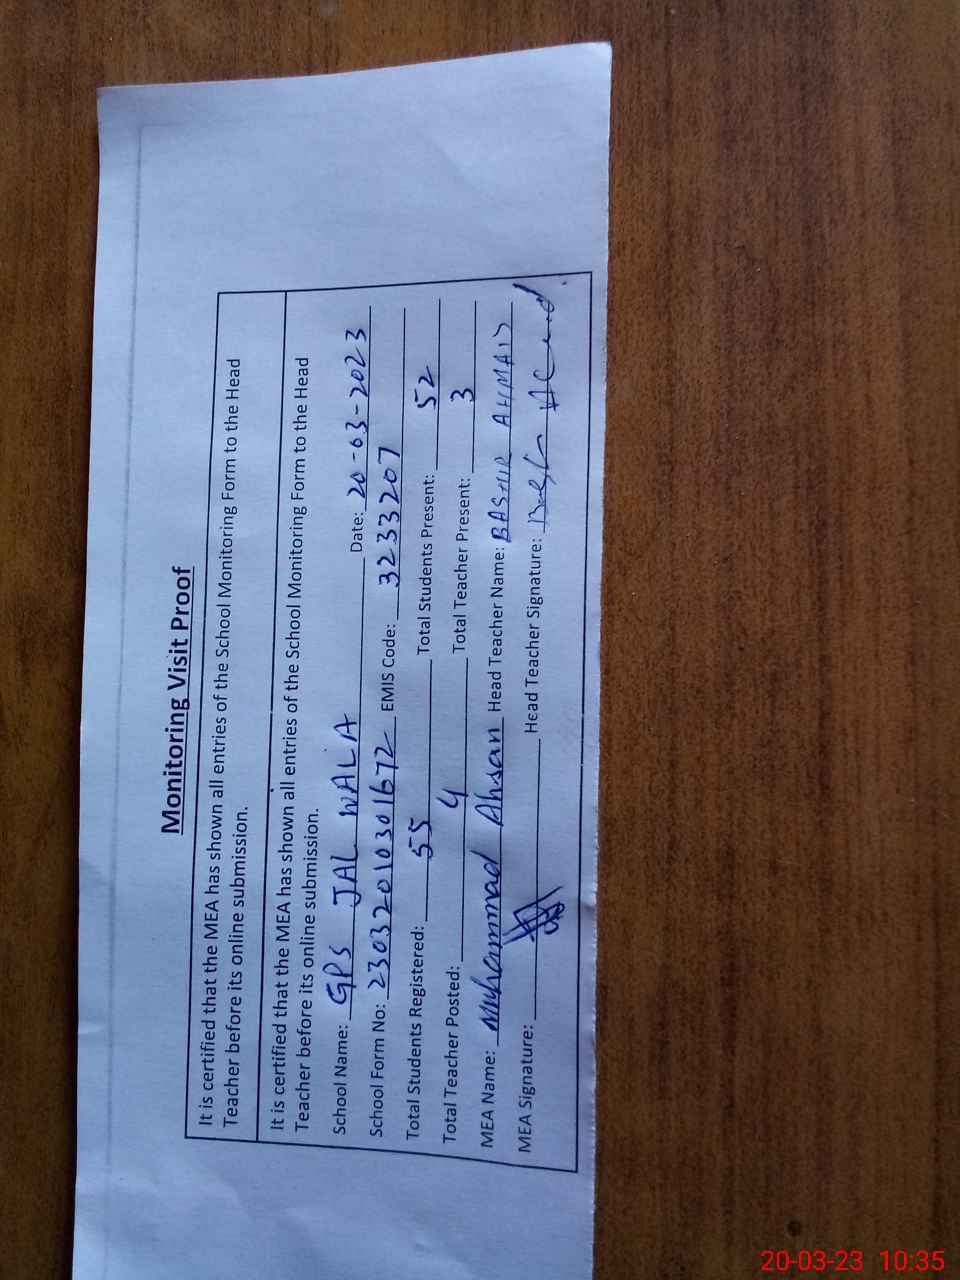 Monitoring Visit Proof
It is certified that the MEA has shown all entries of the School Monitoring Form to the Head
Teacher before its online submission.
It is certified that the MEA has shown all entries of the School Monitoring Form to the Head
Teacher before its online submission.
School Name: GPS JAL WALA Date: 20-03-2023
School Form No: 2303201030 1672 EMIS Code: 3233207
Total Students Registered: 55 Total Students Present: 52
Total Teacher Posted: 4 Total Teacher Present: 3
MEA Name: Muhammad Ahsan Head Teacher Name: BASHIR AHMAD
MEA Signature: Head Teacher Signature:
20-03-23 10:35